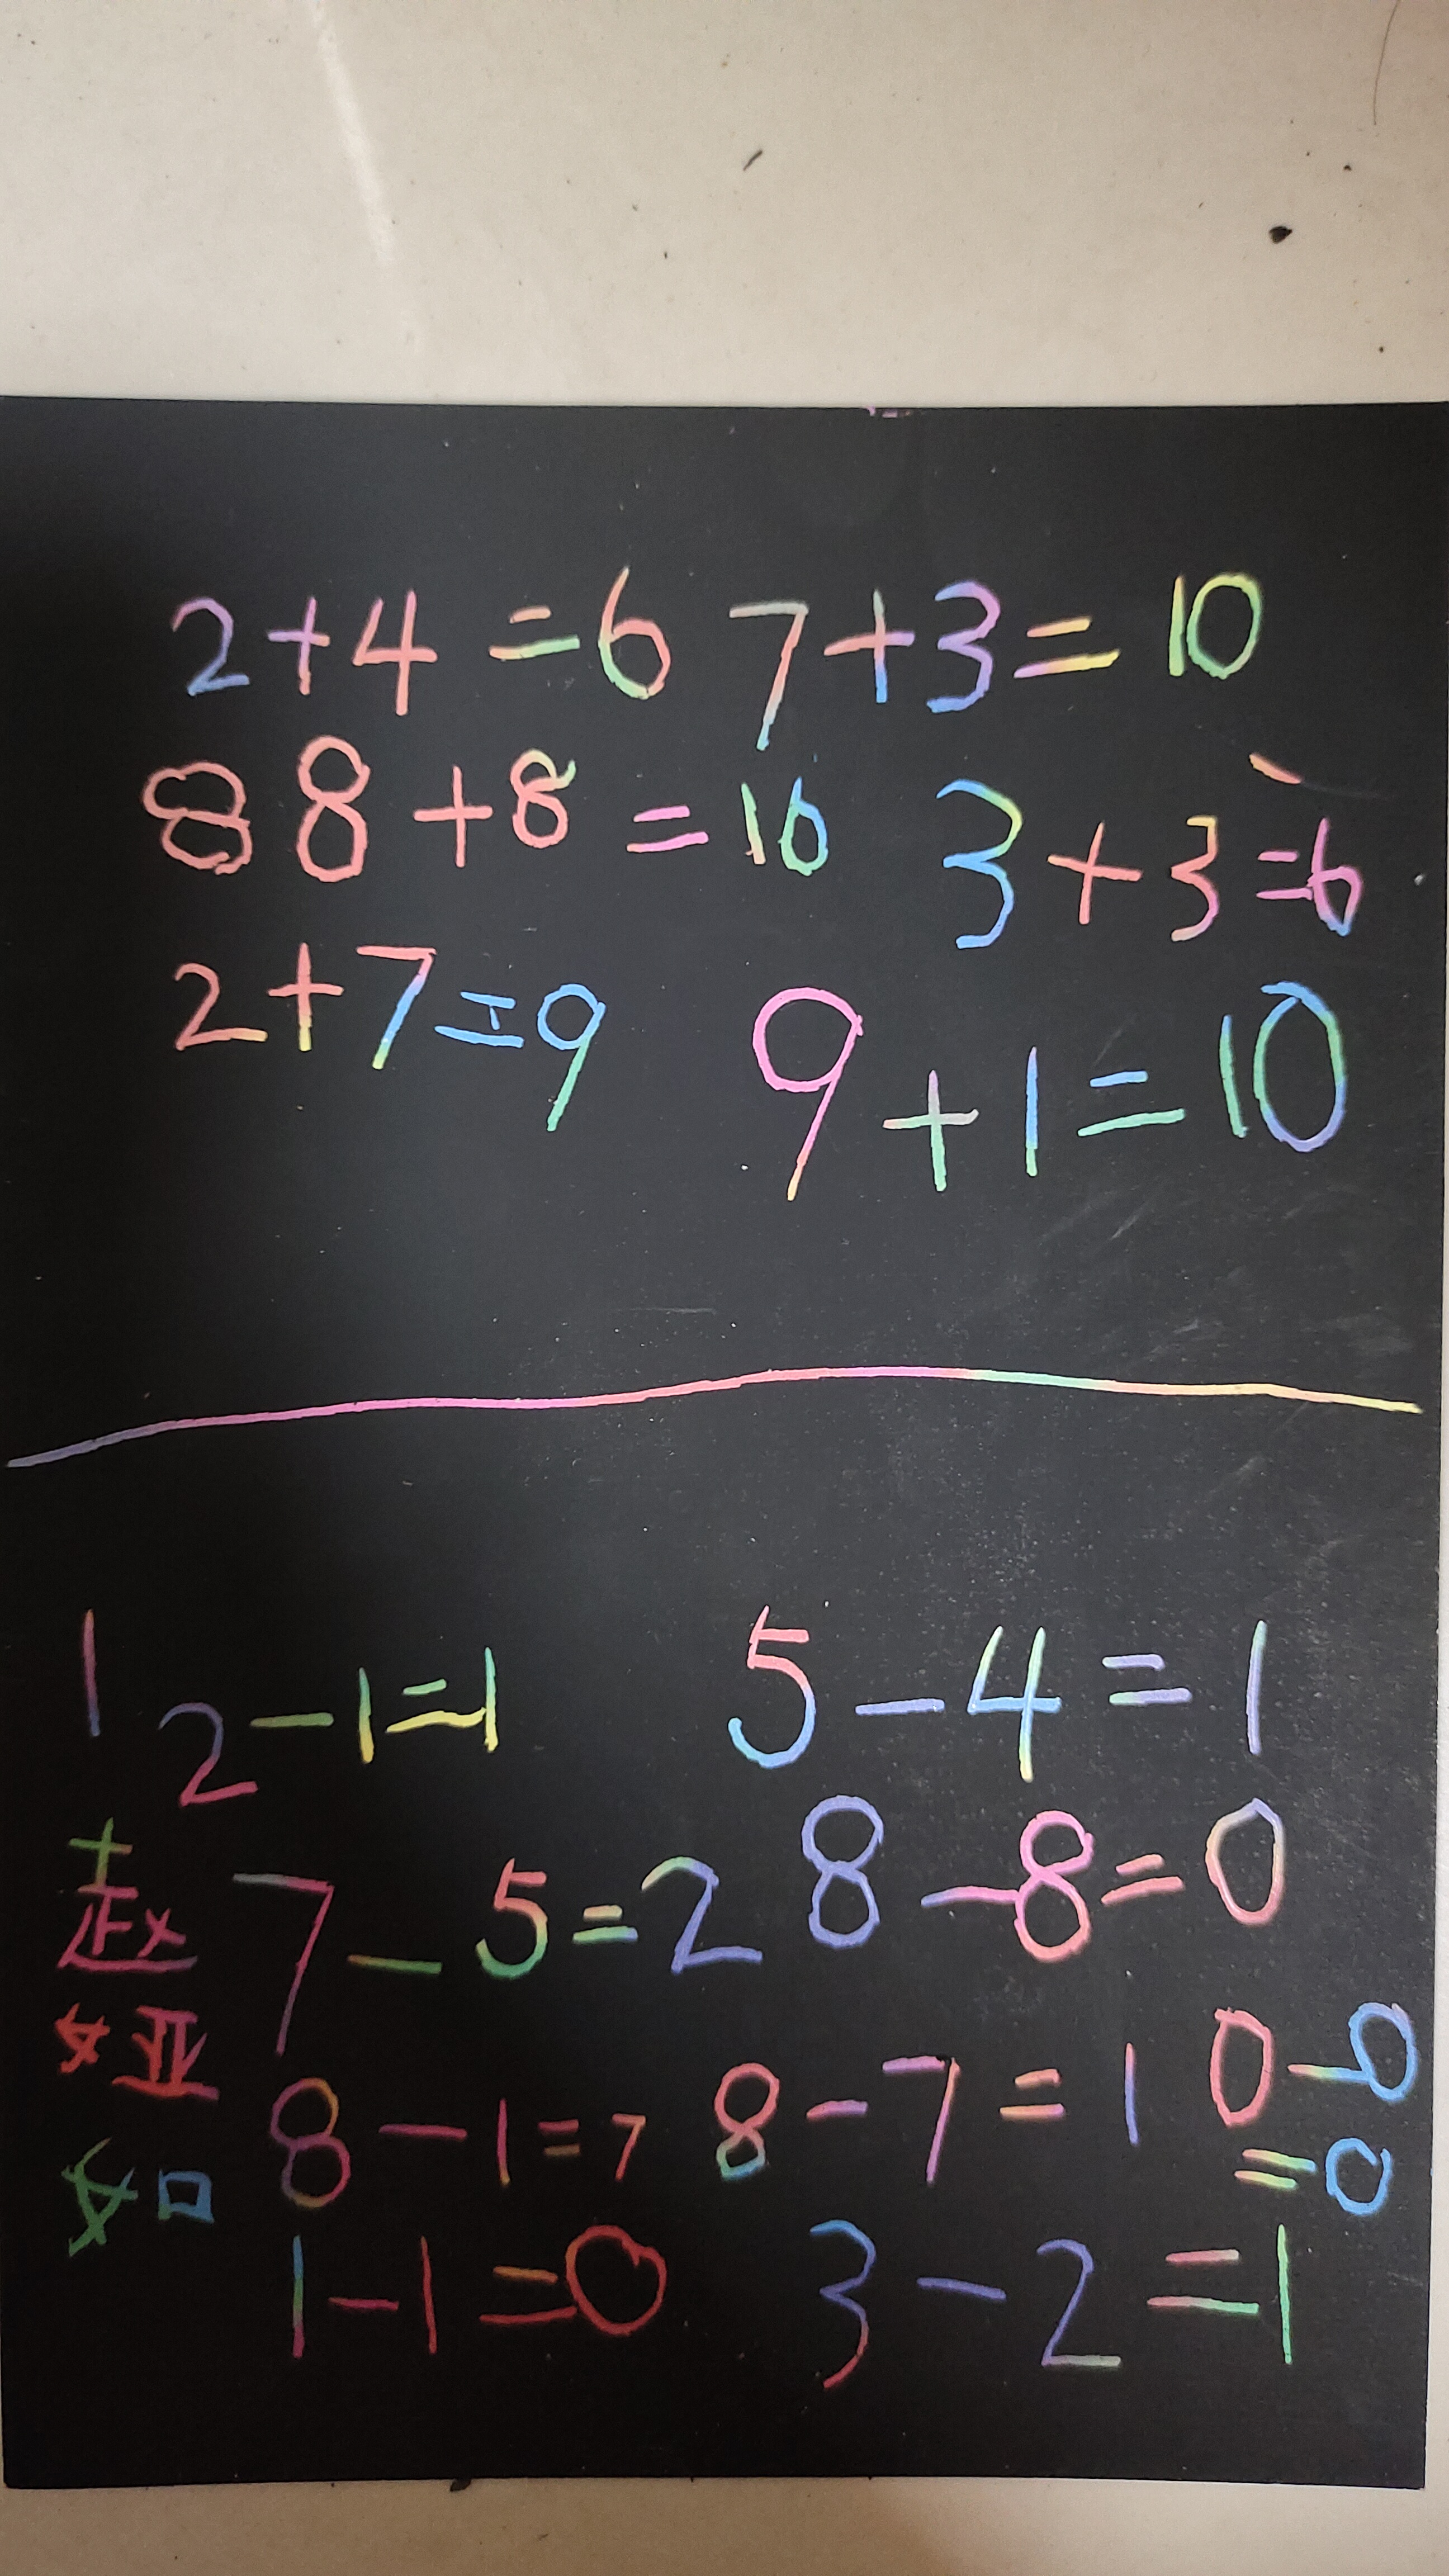 2+4=6 7+3=10
8 8+8=16 3+3=6
2+7=9 9+1=10
1 2-1=1 5-4=1
7-5=2 8-8=0
8-1=7 8-7=1 0-0
=0
1-1=0 3-2=1
赵
娅
如